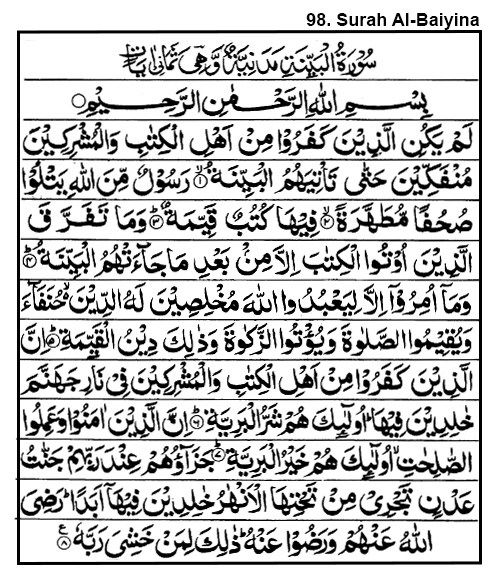 98. Surah Al-Baiyina
سُوْرَةُ الْبَيِّنَةِ مَدَنِيَّةٌ وَّهِىَ ثَمَانِىْ اٰيَاتٍ
بِسْمِ اللهِ الرَّحْمٰنِ الرَّحِيْمِ ○
لَمْ يَكُنِ الَّذِيْنَ كَفَرُوْا مِنْ اَهْلِ الْكِتٰبِ وَالْمُشْرِكِيْنَ
مُنْفَكِّيْنَ حَتّٰى تَاْتِيَهُمُ الْبَيِّنَةُ ۙ﴿۱﴾ رَسُوْلٌ مِّنَ اللهِ يَتْلُوْا
صُحُفًا مُّطَهَّرَةً ۙ﴿۲﴾ فِيْهَا كُتُبٌ قَيِّمَةٌ ؕ﴿۳﴾ وَمَا تَفَرَّقَ
الَّذِيْنَ اُوْتُوا الْكِتٰبَ اِلَّا مِنْۢ بَعْدِ مَا جَآءَتْهُمُ الْبَيِّنَةُ ؕ﴿۴﴾
وَمَاۤ اُمِرُوْۤا اِلَّا لِيَعْبُدُوا اللهَ مُخْلِصِيْنَ لَهُ الدِّيْنَ ۙ حُنَفَآءَ
وَيُقِيْمُوا الصَّلٰوةَ وَيُؤْتُوا الزَّكٰوةَ وَذٰلِكَ دِيْنُ الْقَيِّمَةِ ؕ﴿۵﴾ اِنَّ
الَّذِيْنَ كَفَرُوْا مِنْ اَهْلِ الْكِتٰبِ وَالْمُشْرِكِيْنَ فِىْ نَارِ جَهَنَّمَ
خٰلِدِيْنَ فِيْهَا ؕ اُولٰٓئِكَ هُمْ شَرُّ الْبَرِيَّةِ ؕ﴿۶﴾ اِنَّ الَّذِيْنَ اٰمَنُوْا وَعَمِلُوا
الصّٰلِحٰتِ ۙ اُولٰٓئِكَ هُمْ خَيْرُ الْبَرِيَّةِ ؕ﴿۷﴾ جَزَآؤُهُمْ عِنْدَ رَبِّهِمْ جَنّٰتُ
عَدْنٍ تَجْرِىْ مِنْ تَحْتِهَا الْاَنْهٰرُ خٰلِدِيْنَ فِيْهَاۤ اَبَدًا ؕ رَضِىَ
اللهُ عَنْهُمْ وَرَضُوْا عَنْهُ ؕ ذٰلِكَ لِمَنْ خَشِىَ رَبَّهٗ ﴿۸﴾ ع